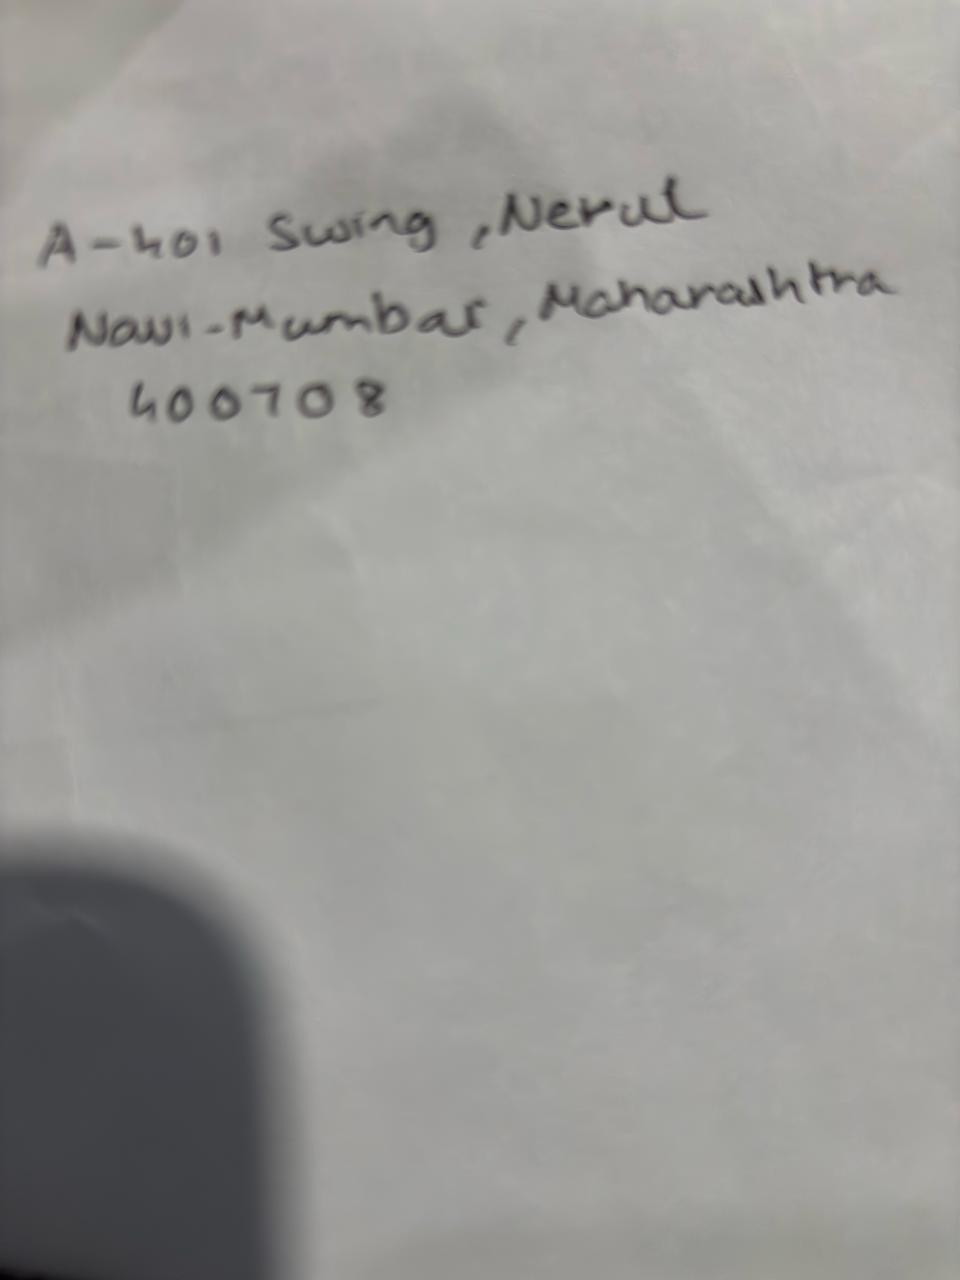 A-401 Swing, Nerul
Navi-Mumbai, Maharashtra
400708